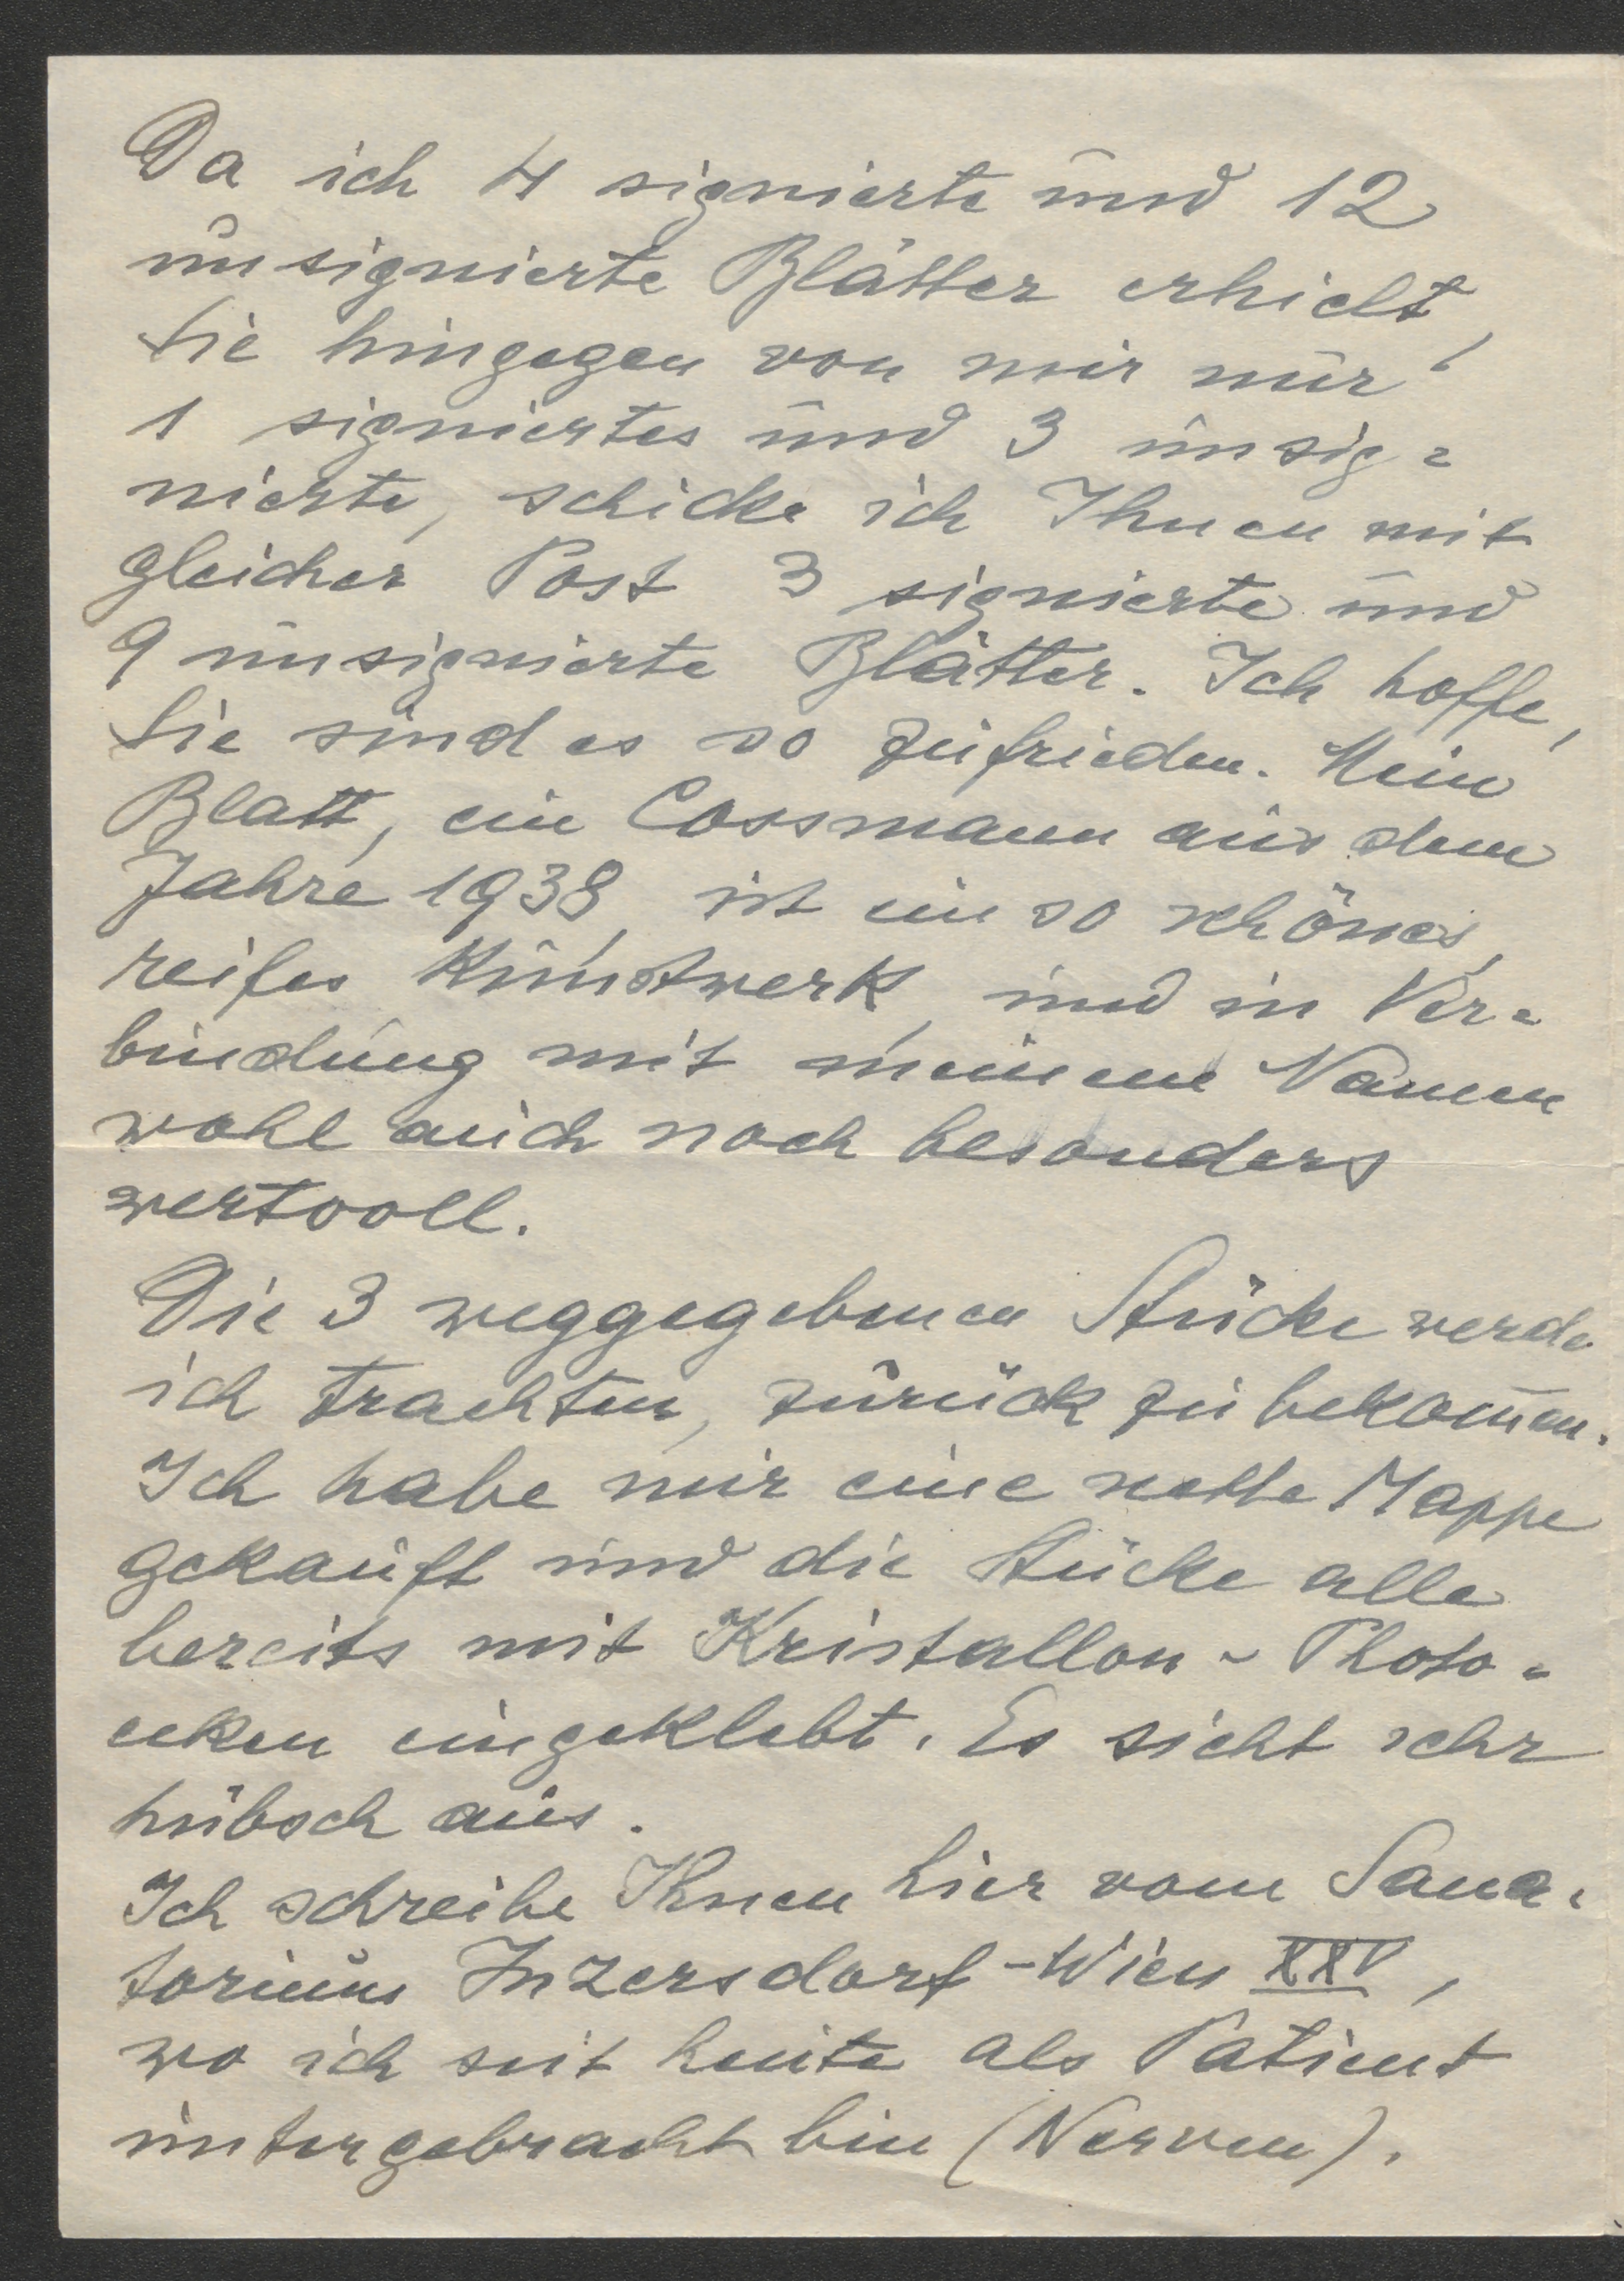 Da ich 4 signierte und 12
unsignierte Blätter erhielt,
Sie hingegen von mir nur
1 signiertes und 3 unsig=
nierte, schicke ich Ihnen mit
gleicher Post 3 signierte und
9 unsignierte Blätter. Ich hoffe,
Sie sind es so zufrieden. Mein
Blatt, ein Cossmann aus dem
Jahre 1938, ist ein so schönes,
reifes Kunstwerk, und in Ver=
bindung mit meinem Namen
wohl auch noch besonders
wertvoll.
Die 3 weggegebenen Stücke werde
ich trachten, zurück zu bekom̄en.
Ich habe mir eine nette Mappe
gekauft und die Stücke alle
bereits mit Kristallon-Photo=
ecken eingeklebt. Es sieht sehr
hübsch aus.
Ich schreibe Ihnen hier vom Sana=
torium Inzersdorf-Wien XXV,
wo ich seit heute als Patient
untergebracht bin (Nerven).